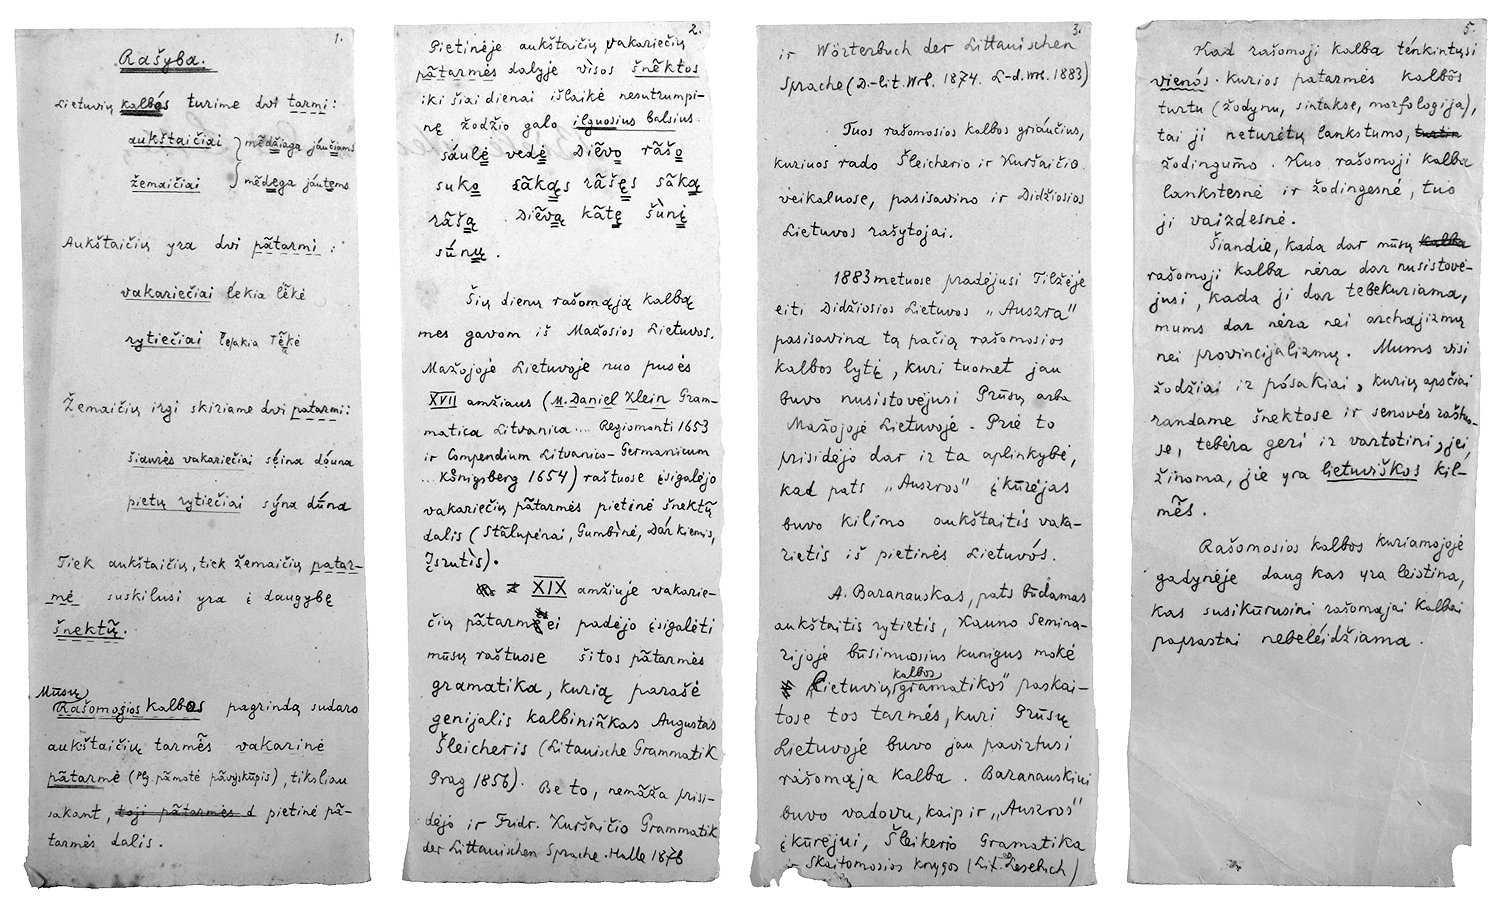 1.
Rašyba.
Lietuvių kalbõs turime dvi tarmi:
aukštaičiai } mẽdžiaga jáučiams
žemaičiai } mẽdega jáutems
Aukštaičių yra dvi pãtarmi:
vakariečiai lekia lẽkė
rytiečiai
Žemaičių irgi skiriame dvi patarmi:
šiaurės vakariečiai
pietų rytiečiai
Tiek aukštaičių, tiek žemaičių patar-
mė suskilusi yra į daugybę
šnektų̃.
Mūsų
Rašomosios kalbos pagrindą sudaro
aukštaičių tarmės vakarinė
pãtarmė (plg. pãmotė pãvyskupis), tiksliau
sakant, toji pãtarmės d pietinė pã-
tarmės dalis.
2.
Pietinėje aukštaičių vakariečių
pãtarmės dalyje visos šnektos
iki šiai dienai išlaikė nesutrumpi-
nę žodžio galo ilguosius balsius:
sáulė vedė Diẽvo rãšo
suko sãkąs rãšęs sãką
rãšą Diẽvą kãtę šùnį
súnų.
Šių dienų rašomąją kalbą
mes gavom iš Mažosios Lietuvos.
Mažojoje Lietuvoje nuo pusės
XVII amžiaus (M. Daniel Klein Gram-
matica Litvanica ... Regiomonti 1653
ir Compendium Litvanico-Germanicum
... Königsberg 1654) raštuose įsigalėjo
vakariečių pãtarmės pietinė šnektų̃
dalis (Stãlupėnai, Gumbìnė, Dárkiemis,
Įsrutis).
XIX amžiuje vakarie-
čių pãtarmei padėjo įsigalėti
mūsų raštuose šitos pãtarmės
gramatika, kurią parašė
genijalis kalbiniñkas Augustas
Šleicheris (Litauische Grammatik
Prag 1856). Be to, nemãža prisi-
dėjo ir Fridr. Kuršaičio Grammatik
der Littauischen Sprache. Halle 1876
3.
ir Wörterbuch der Littauischen
Sprache (D.-lit. Wrb. 1874. L-d. Wrb. 1883)
Tuos rašomosios kalbos griaučius,
kuriuos rado Šleicherio ir Kuršaičio
veikaluose, pasisavino ir Didžiosios
Lietuvos rašytojai.
1883 metuose pradėjusi Tilžėje
eiti Didžiosios Lietuvos „Auszra"
pasisavina tą pačią rašomosios
kalbos lytį, kuri tuomet jau
buvo nusistovėjusi Prūsų arba
Mažojoje Lietuvoje. Prie to
prisidėjo dar ir ta aplinkybė,
kad pats „Auszros" įkūrėjas
buvo kilimo aukštaitis vaka-
rietis iš pietinės Lietuvós.
A. Baranauskas, pats būdamas
aukštaitis rytietis, Kauno Semina-
rijoje būsimuosius kunigus mokė
kalbos
Lietuvių gramatikos" paskai-
tose tos tarmės, kuri Prūsų
Lietuvoje buvo jau pavirtusi
rašomąja kalba. Baranauskui
buvo vadovu, kaip ir „Auszros"
įkūrėjui, Šleikerio Gramatika
ir Skaitomosios knygos (Lit. Lesebuch)
5.
Kad rašomoji kalba ténkintųsi
vienõs kurios patarmės kalbõs
turtu (žodynu, sintakse, morfologija),
tai ji neturėtų lankstumo,
žodingumo. Kuo rašomoji kalba
lankstesnė ir žodingesnė, tuo
ji vaizdesnė.
Šiandie, kada dar mūsų kalba
rašomoji kalba nėra dar nusistovė-
jusi, kada ji dar tebekuriama,
mums dar nėra nei archajizmų
nei provincijalizmų. Mums visi
žodžiai ir pósakiai, kurių apsčiai
randame šnektose ir senovės raštuo-
se, tebėra geri ir vartotini, jei,
žinoma, jie yra lietuviškos kil-
mės.
Rašomosios kalbos kuriamojoje
gadynėje daug kas yra leistina,
kas susikūrusiai rašomajai kalbai
paprastai nebeléidžiama.